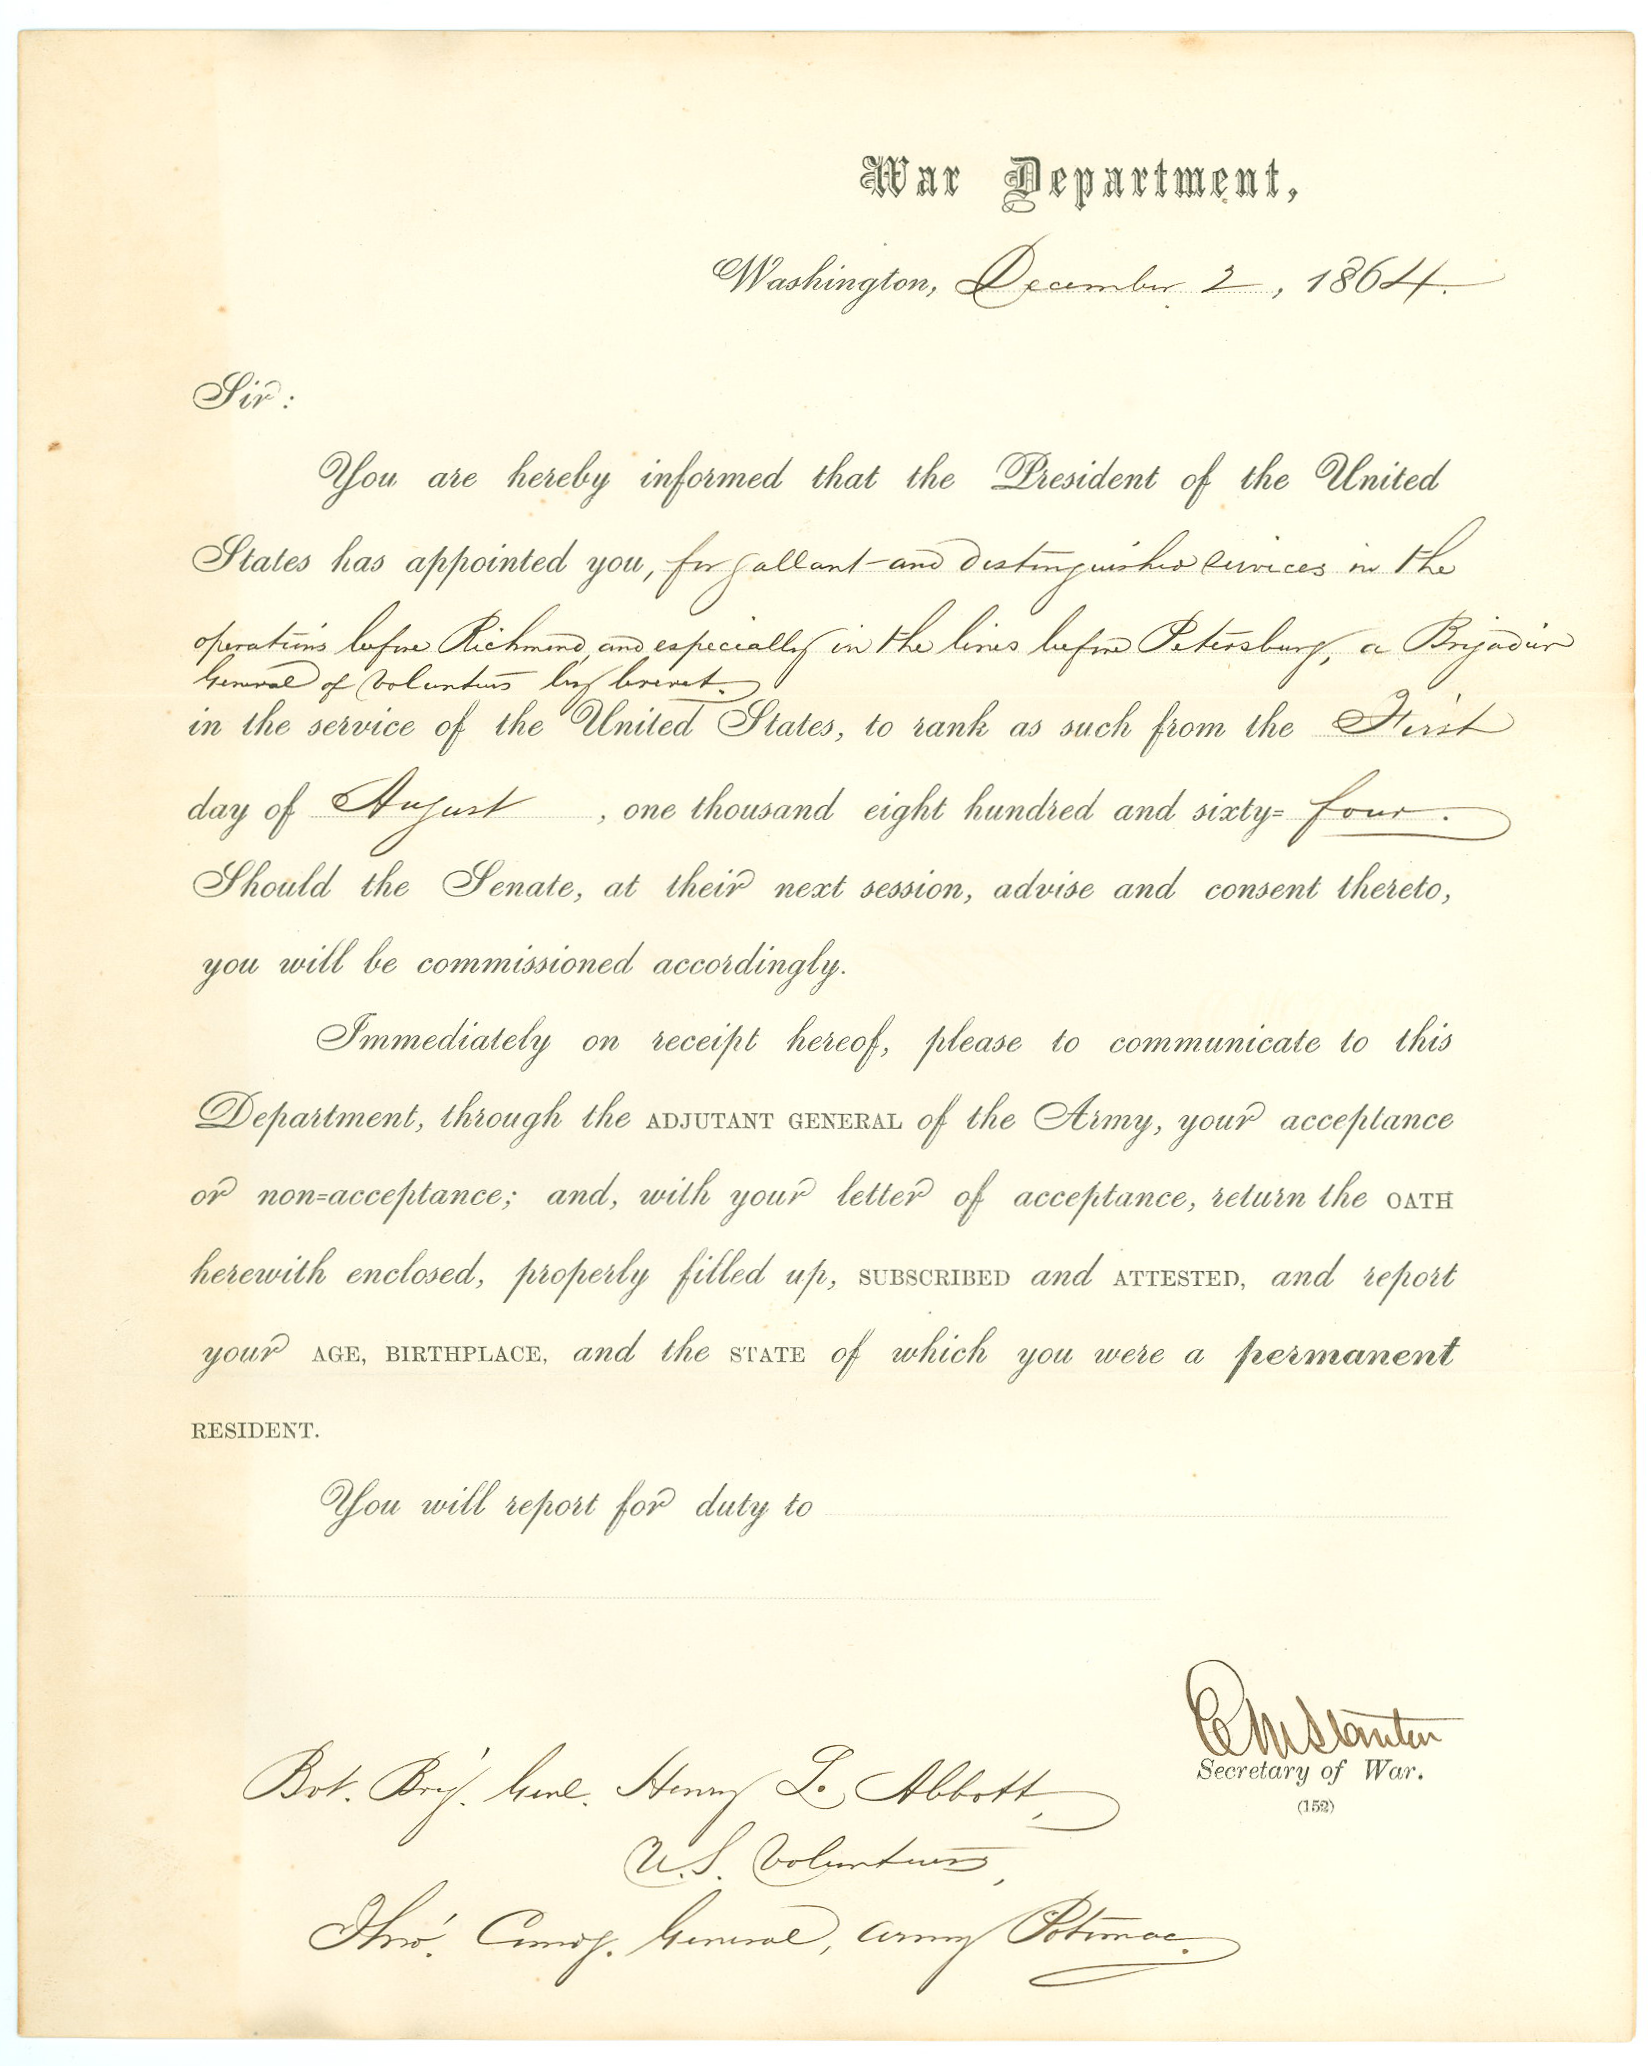 War Department,
Washington, December 2, 1864.
Sir:
You are hereby informed that the President of the United
States has appointed you, for gallant and distinguished services in the
operations before Richmond, and especially in the lines before Petersburg, a Brigadier
General of Volunteers by brevet.
in the service of the United States, to rank as such from the First
day of August, one thousand eight hundred and sixty=four.
Should the Senate, at their next session, advise and consent thereto,
you will be commissioned accordingly.
Immediately on receipt hereof, please to communicate to this
Department, through the ADJUTANT GENERAL of the Army, your acceptance
or non=acceptance; and, with your letter of acceptance, return the OATH
herewith enclosed, properly filled up, SUBSCRIBED and ATTESTED, and report
your AGE, BIRTHPLACE, and the STATE of which you were a permanent
RESIDENT.
You will report for duty to
E M Stanton
Secretary of War.
(152)
Bvt. Brig. Genl. Henry L. Abbott,
U.S. Volunteers,
Thro'. Comdg. General, Army Potomac.